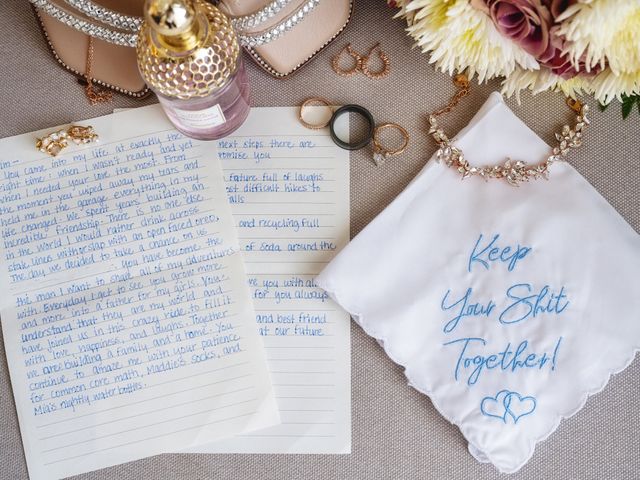 You came into my life at exactly the
right time. I wasn't ready and yet
when I needed your love the most. From
the moment you wiped away my tears and
held me in the garage everything in my
life changed. We spent years building an
incredible friendship. There is no one else
in the world I would rather drink across
state lines with or stay with an open faced
The day we decided to take a chance on us
you have become the
man I want to all of my adventures
with. Everyday I get to see you grow more
and more into a father for my girls. You
understand that they are my world and
have joined us in this crazy ride to fill it
with love, happiness, and laughs. Together
we are building a family and a home. You
continue to amaze me with your patience
for common core math, Maddie's socks, and
Mia's nightly water bottles.
next steps there are
promise you
future full of laughs
most difficult hikes to
falls
and recycling full
of soda around the
you with all
for you always
and best friend
at our future
Keep
Your Shit
Together!